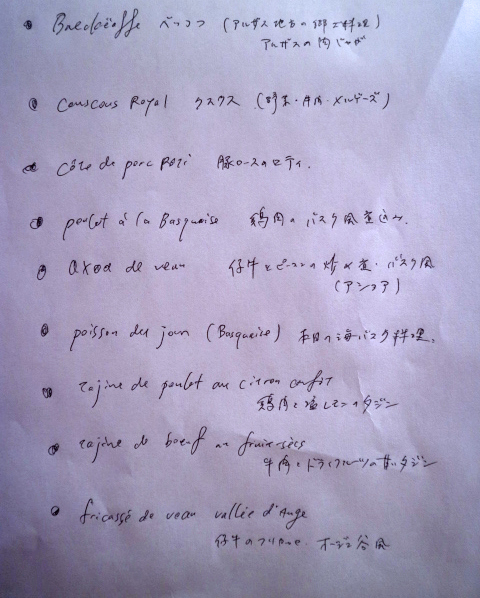 Baeckeoffe ベッコフ (アルザス地方の郷土料理)
アルザスの肉じゃが
couscous Royal クスクス (野菜・羊肉・メルゲーズ)
Côte de porc Rôti 豚ロースのロティ.
poulet à la Basquaise 鶏肉のバスク風煮込み.
axoa de veau 仔牛とピーマンの炒め煮・バスク風
(アショア)
poisson du jour (Basquaise) 本日の海バスク料理.
tajine de poulet au citron confit
鶏肉と塩レモンのタジン
tajine de boeuf au fruits-secs
牛肉とドライフルーツの甘いタジン
fricassé de veau vallée d'Auge
仔牛のフリカッセ. オージュ谷風